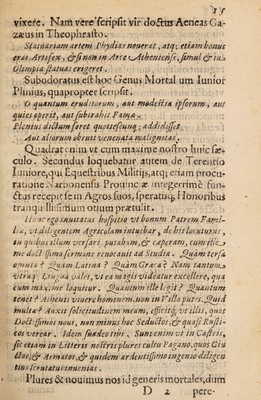 25
vixere. Nam vere scripsit vir doctus Aeneas Ga-
zæus in Theophrasto.
Statuariam artem Phydias noverat, atq; etiam bonus
eras Artifex, & si non in Arce Atheniensi, simul & in
Olympia statuas erigeret.
Subodoratus est hoc Genus Mortalium Iunior
Plinius, quapropter scripsit.
O quantum eruditorum, aut modestia ipsorum, aut
quies aperit, aut subtrahit Famæ.
Plenius dictum foret quotiescunq; addidisset
Aut aliorum obruit venenata malignitas.
Quadrat enim vt cum maxime nostro huic sæ-
culo. Secundus loquebatur autem de Terentio
Iuniore, qui Equestribus Militijs, atq; etiam procu-
ratione Narbonensis Provincæ integerrimè fun-
ctus recepit se in Agros suos, speratisq; Honoribus
tranquillissimum otium prætulit.
Hunc ego invitatus hospitio vt bonum Patrem Fami-
liæ, vt diligentem Agricolam intuebar, de his locuturus,
in quibus illum versari putabam, & cæperam, cum ille
me doctissimo sermone revocavit ad Studia. Quàm tersa
omnia? Quàm Latina? Quàm Græca? Nam tantum
vtraq; Lingua valet, vt ea magis videatur excellere, qua
cum maxime loquitur. Quantum ille legit? Quantum
tenet? Athenis vivere hominem, non in Villa putes. Quid
multa? Auxit solicitudinem meam, effecitq; vt illis, quos
Doctissimos noui, non minus hos Seductos, & quasi Rusti-
cos vererer. Idem suadeo tibi. Sunt enim vt in Castris,
sic etiam in Litteris nostris plures cultu Pagano, quos Cin
ctos, & Armatos, & quidem ardentissimo ingenio diligen
tius scrutatus invenias.
Plures & nouimus nos id generis mortales, dum
D 2 pere-